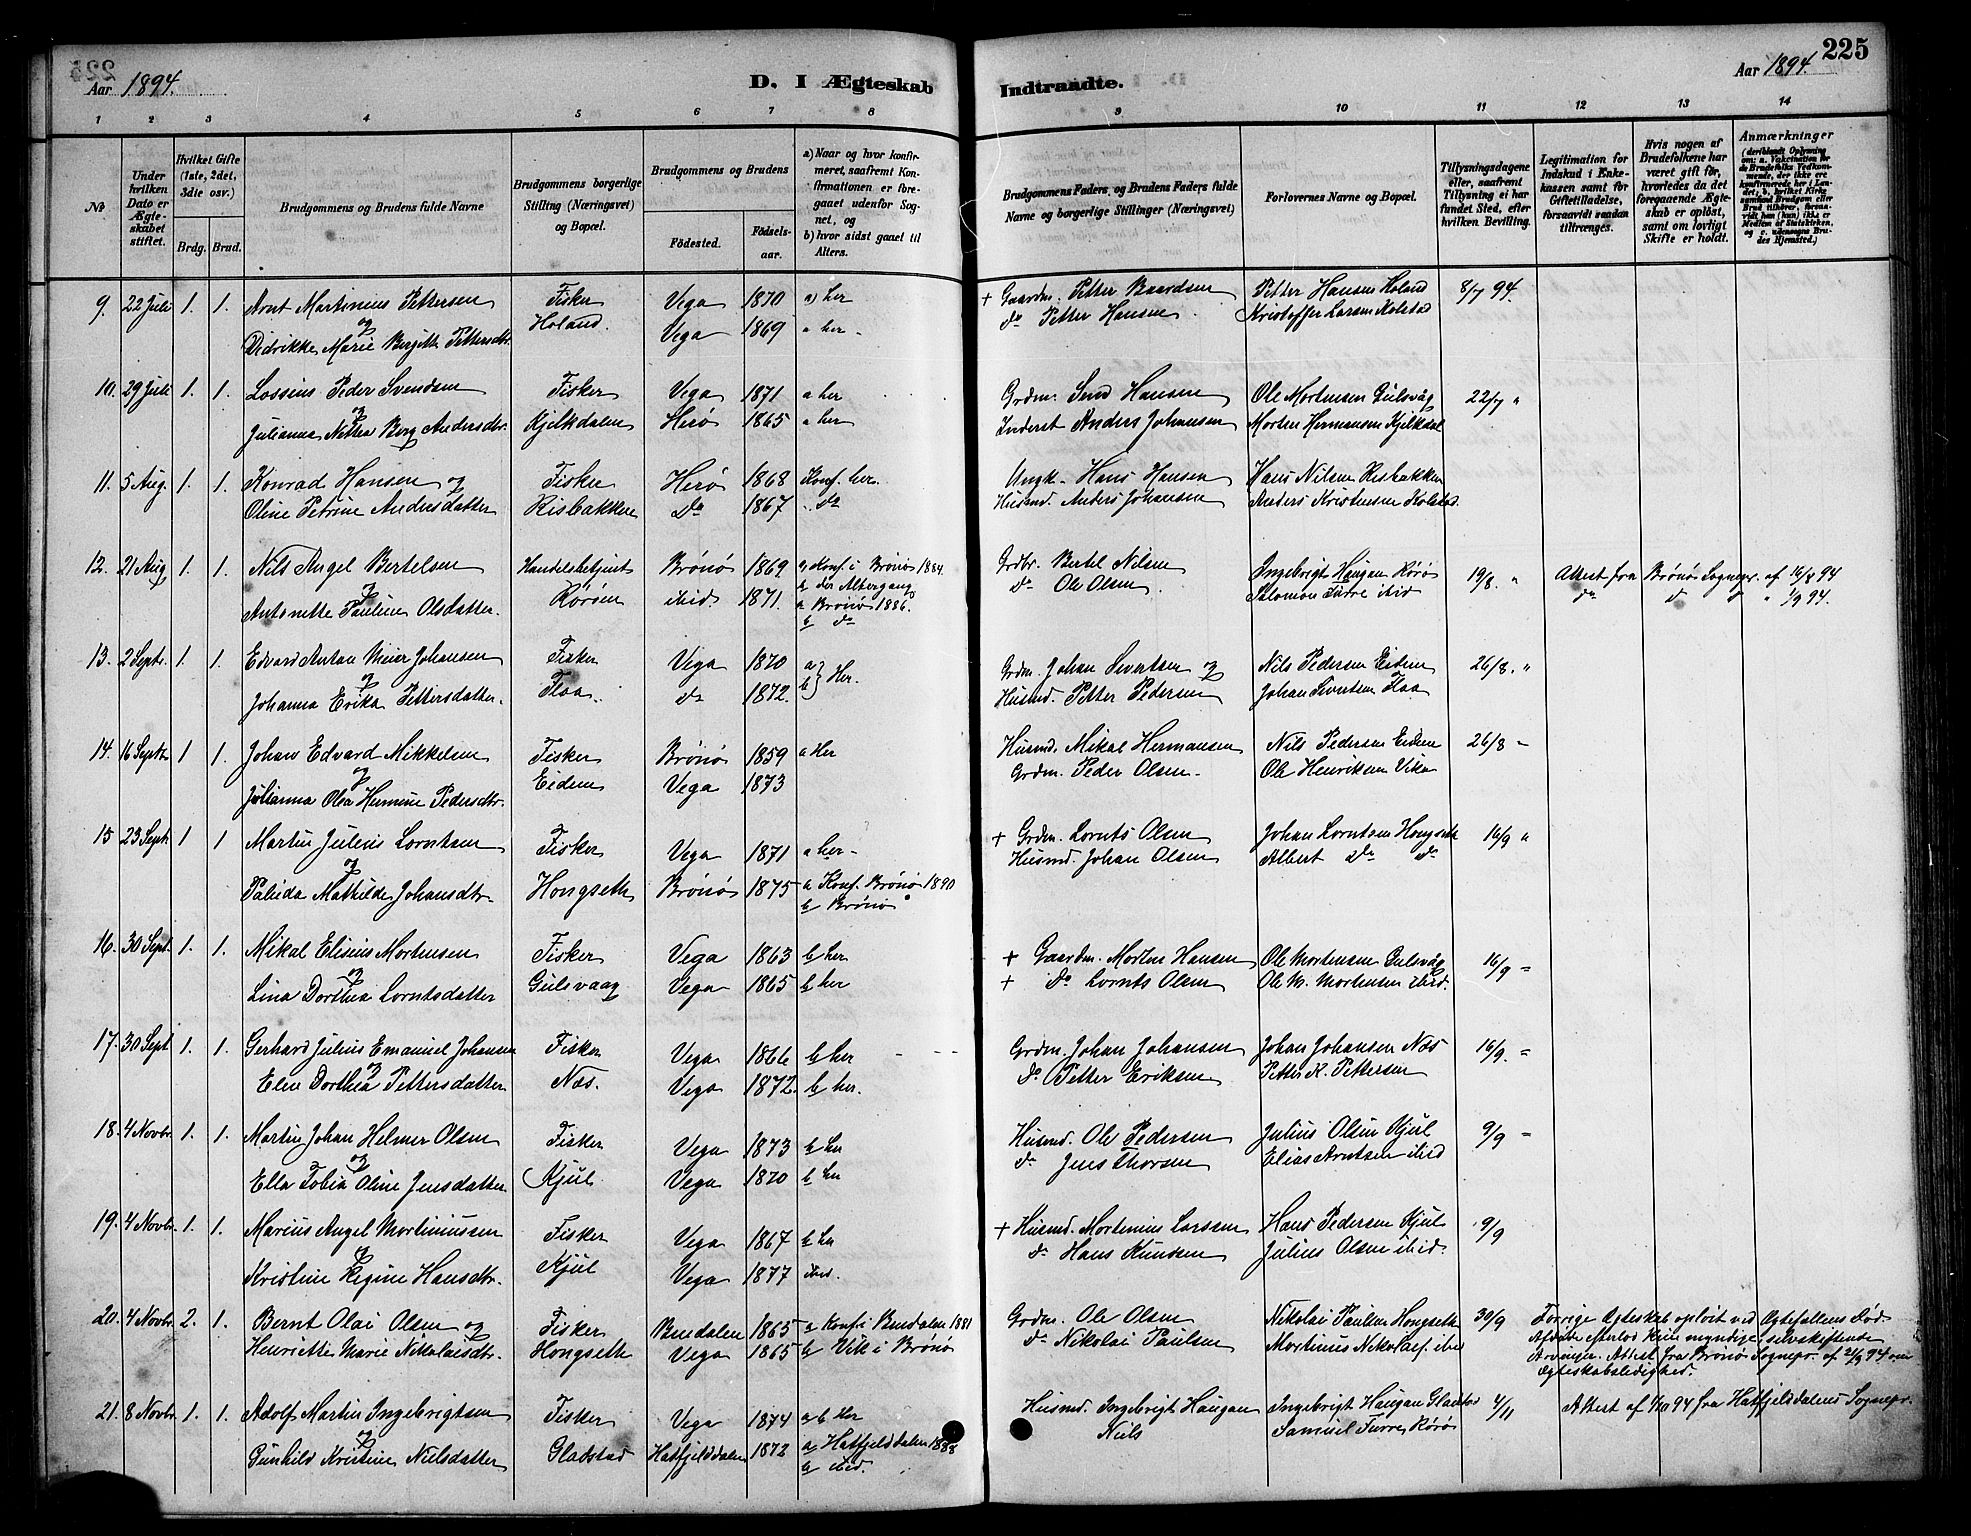 225
Aar 1894.
D. I Ægteskab Indtraadte.
Aar 1894.
1 2 3 4 5 6 7 8 9 10 11 12 13 14
No
Under hvilken Dato er Ægteskabet stiftet.
Hvilket Gifte (1ste, 2det, 3die osv.)
Brdg. Brud.
Brudgommens og Brudens fulde Navne
Brudgommens borgerlige Stilling (Næringsvei) og Bopæl.
Brudgommens og Brudens
Fødested. Fødselsaar.
a) Naar og hvor konfirmeret, saafremt Konfirmationen er foregaaet udenfor Sognet, og
b) hvor sidst gaaet til Alters.
Brudgommens Faders, og Brudens Faders fulde Navne og borgerlige Stillinger (Næringsvei)
Forlovernes Navne og Bopæl.
Tillysningsdagene eller, saafremt Tillysning ei har fundet Sted, efter hvilken Bevilling.
Legitimation for Indskud i Enkekassen samt for Giftetilladelse, forsaavidt saadan tiltrænges.
Hvis nogen af Brudefolkene har været gift før, hvorledes da det foregaaende Ægteskab er opløst, samt om lovligt Skifte er holdt.
Anmærkninger
9. 22 Juli 1. 1. Arnt Martinius Pettersen Fisker Vega 1870 a) her + Gaardm. Petter Baardsen Petter Hansen Holand 8/7 94.
og Holand.
Didrikke Marie Bergitte Pettersdtr. Vega 1869 a her do Petter Hansen Kristoffer Larsen Kolstad
10. 29 Juli 1. 1. Lossius Peder Svendsen Fisker Vega 1871 a her Grdm. Send Hansen Ole Mortensen Gulsvåg 22/7 "
og
Julianna Nettea Berg Andersdtr. Kjilkdalen Herø 1865 a her Inderst Anders Johansen Morten Hermansen Kjilkdal
11. 5 Aug. 1. 1. Konrad Hansen og Fisker Herø 1868 Konf. her. Ungk. Hans Hansen Hans Nilsen Risbakken
Oline Petrine Andersdatter Risbakken do 1867 " do Husmd. Anders Johansen Anders Kristensen Kolstad.
12. 21 Aug 1. 1. Nils Angel Bertelsen Handelsbetjent Brønø 1869 a Konf. i Brønø 1884. Grdbr. Bertel Nilsen Ingebrigt Haugan Rørø 19/8. " Attest fra Brønø Sognepr. af 16/8 94
og b der Altergang
Antonette Pauline Olsdatter. Rørøen ibid. 1871. a Brønø 1886. do Ole Olsen Salomon Furre ibid do d d " 1/9 94.
b do
13. 2 Septr. 1. 1. Edvard Antan Meier Johansen Fisker Vega 1870 a} Her. Grdm. Johan Sivertsen og Nils Pedersen Eidem 26/8. "
og
Johanna Erika Pettersdatter. Floa. do 1872. b} Husmd. Petter Pedersen Johan Sivertsen Floa
14. 16 Septr. 1 1. Johan Edvard Mikkelsen Fisker Brønø 1859 a Her Husmd. Mikal Hermansen Nils Pedersen Eidem 26/8 "
og
Julianna Olea Hermine Pedersdtr. Eidem Vega 1873 Grdm. Peder Olsen Ole Henriksen Vika
15 23 Septr. 1 1 Martin Julius Lorntsen Fisker Vega 1871 a her + Grdm. Lornts Olsen Johan Lorntsen Hongseth 16/9 "
og Husmd. Johan Olsen Albert do do
Palida Mathilde Johansdtr. Hongseth Brønø 1875 a Konf. Brønø 1890
b Brønø
16. 30 Sept. 1. 1. Mikal Elisius Mortensen Fisker Vega 1863 b her + Gaardm. Morten Hansen Ole Mortensen Gulsvåg 16/9 "
og
Lina Dorthea Lorntsdatter Gulsvaag Vega 1865 b her + do Lornts Olsen Ole M. Mortensen ibid.
17. 30 Sept 1. 1. Gerhard Julius Emanuel Johansen Fisker Vega 1866 b her Grdm. Johan Johansen Johan Johansen Næs 16/9. "
og
Elen Dorthea Pettersdatter Næs. Vega 1872. b her. do Petter Eriksen Petter K. Pettersen
18. 4 Novbr. 1. 1. Martin Johan Helmer Olsen Fisker Vega 1873 b her Husmd. Ole Pedersen Julius Olsen Kjul 9/9 "
og
Ella Tobia Oline Jensdatter Kjul Vega 1870 b her do Jens Thorsen Elias Arntsen ibid
19. 4 Novbr. 1. 1. Marius Angel Mortiniussen Fisker Vega 1867 b her + Husmd. Mortinius Larssen Hans Pedersen Kjul 9/9
og
Kristine Regine Hansdtr. Kjul Vega 1877 ibid. do Hans Knudsen Julius Olsen ibid.
20. 4 Novbr. 2. 1. Bernt Olai Olsen og Fisker Bindalen 1865 a Konf. i Bindalen 1881 Grdm. Ole Olsen Nikolai Paulsen Hongseth 30/9 Forrige Ægteskab opløst ved Ægtefællens Død.
Henriette Marie Nikolaisdtr. Hongseth Vega 1865 b Vik i Brønø do Nikolai Paulsen Mortinus Nikolaisen ibid Afdøde efterlod kun myndige, selvskiftende
Arvinger. Attest fra Brønø Sognepr. af 21/9 94 om
Ægteskabsledighed.
21. 8 Novbr. 1. 1. Adolf Martin Ingebrigtsen Fisker Vega 1874 a b Her Husmd. Ingebrigt Haugan Ingebrigt Haugan Gladstad 4/11 Attest af 1/10 94 fra Hatfjelddalens Sognepr.
og Niels Samuel Furre Rørø
Gunhild Kristine Nielsdatter Gladstad Hatfjelddalen 1872 a Hatfjelddalen 1888
b ibid.